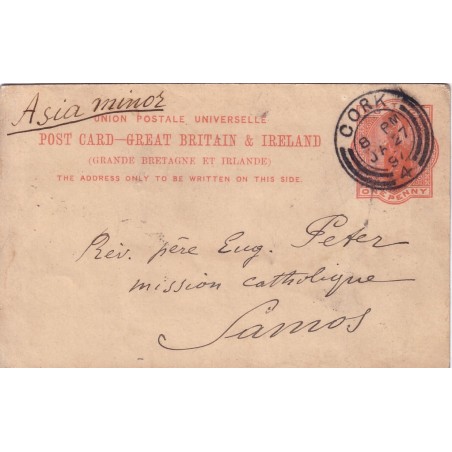 Asia minor
UNION POSTALE UNIVERSELLE
POST CARD—GREAT BRITAIN & IRELAND
(GRANDE BRETAGNE ET IRLANDE)
THE ADDRESS ONLY TO BE WRITTEN ON THIS SIDE.
CORK
8 PM
JA 27
4
ONE PENNY
Rév. père Eug. Peter
mission catholique
Samos